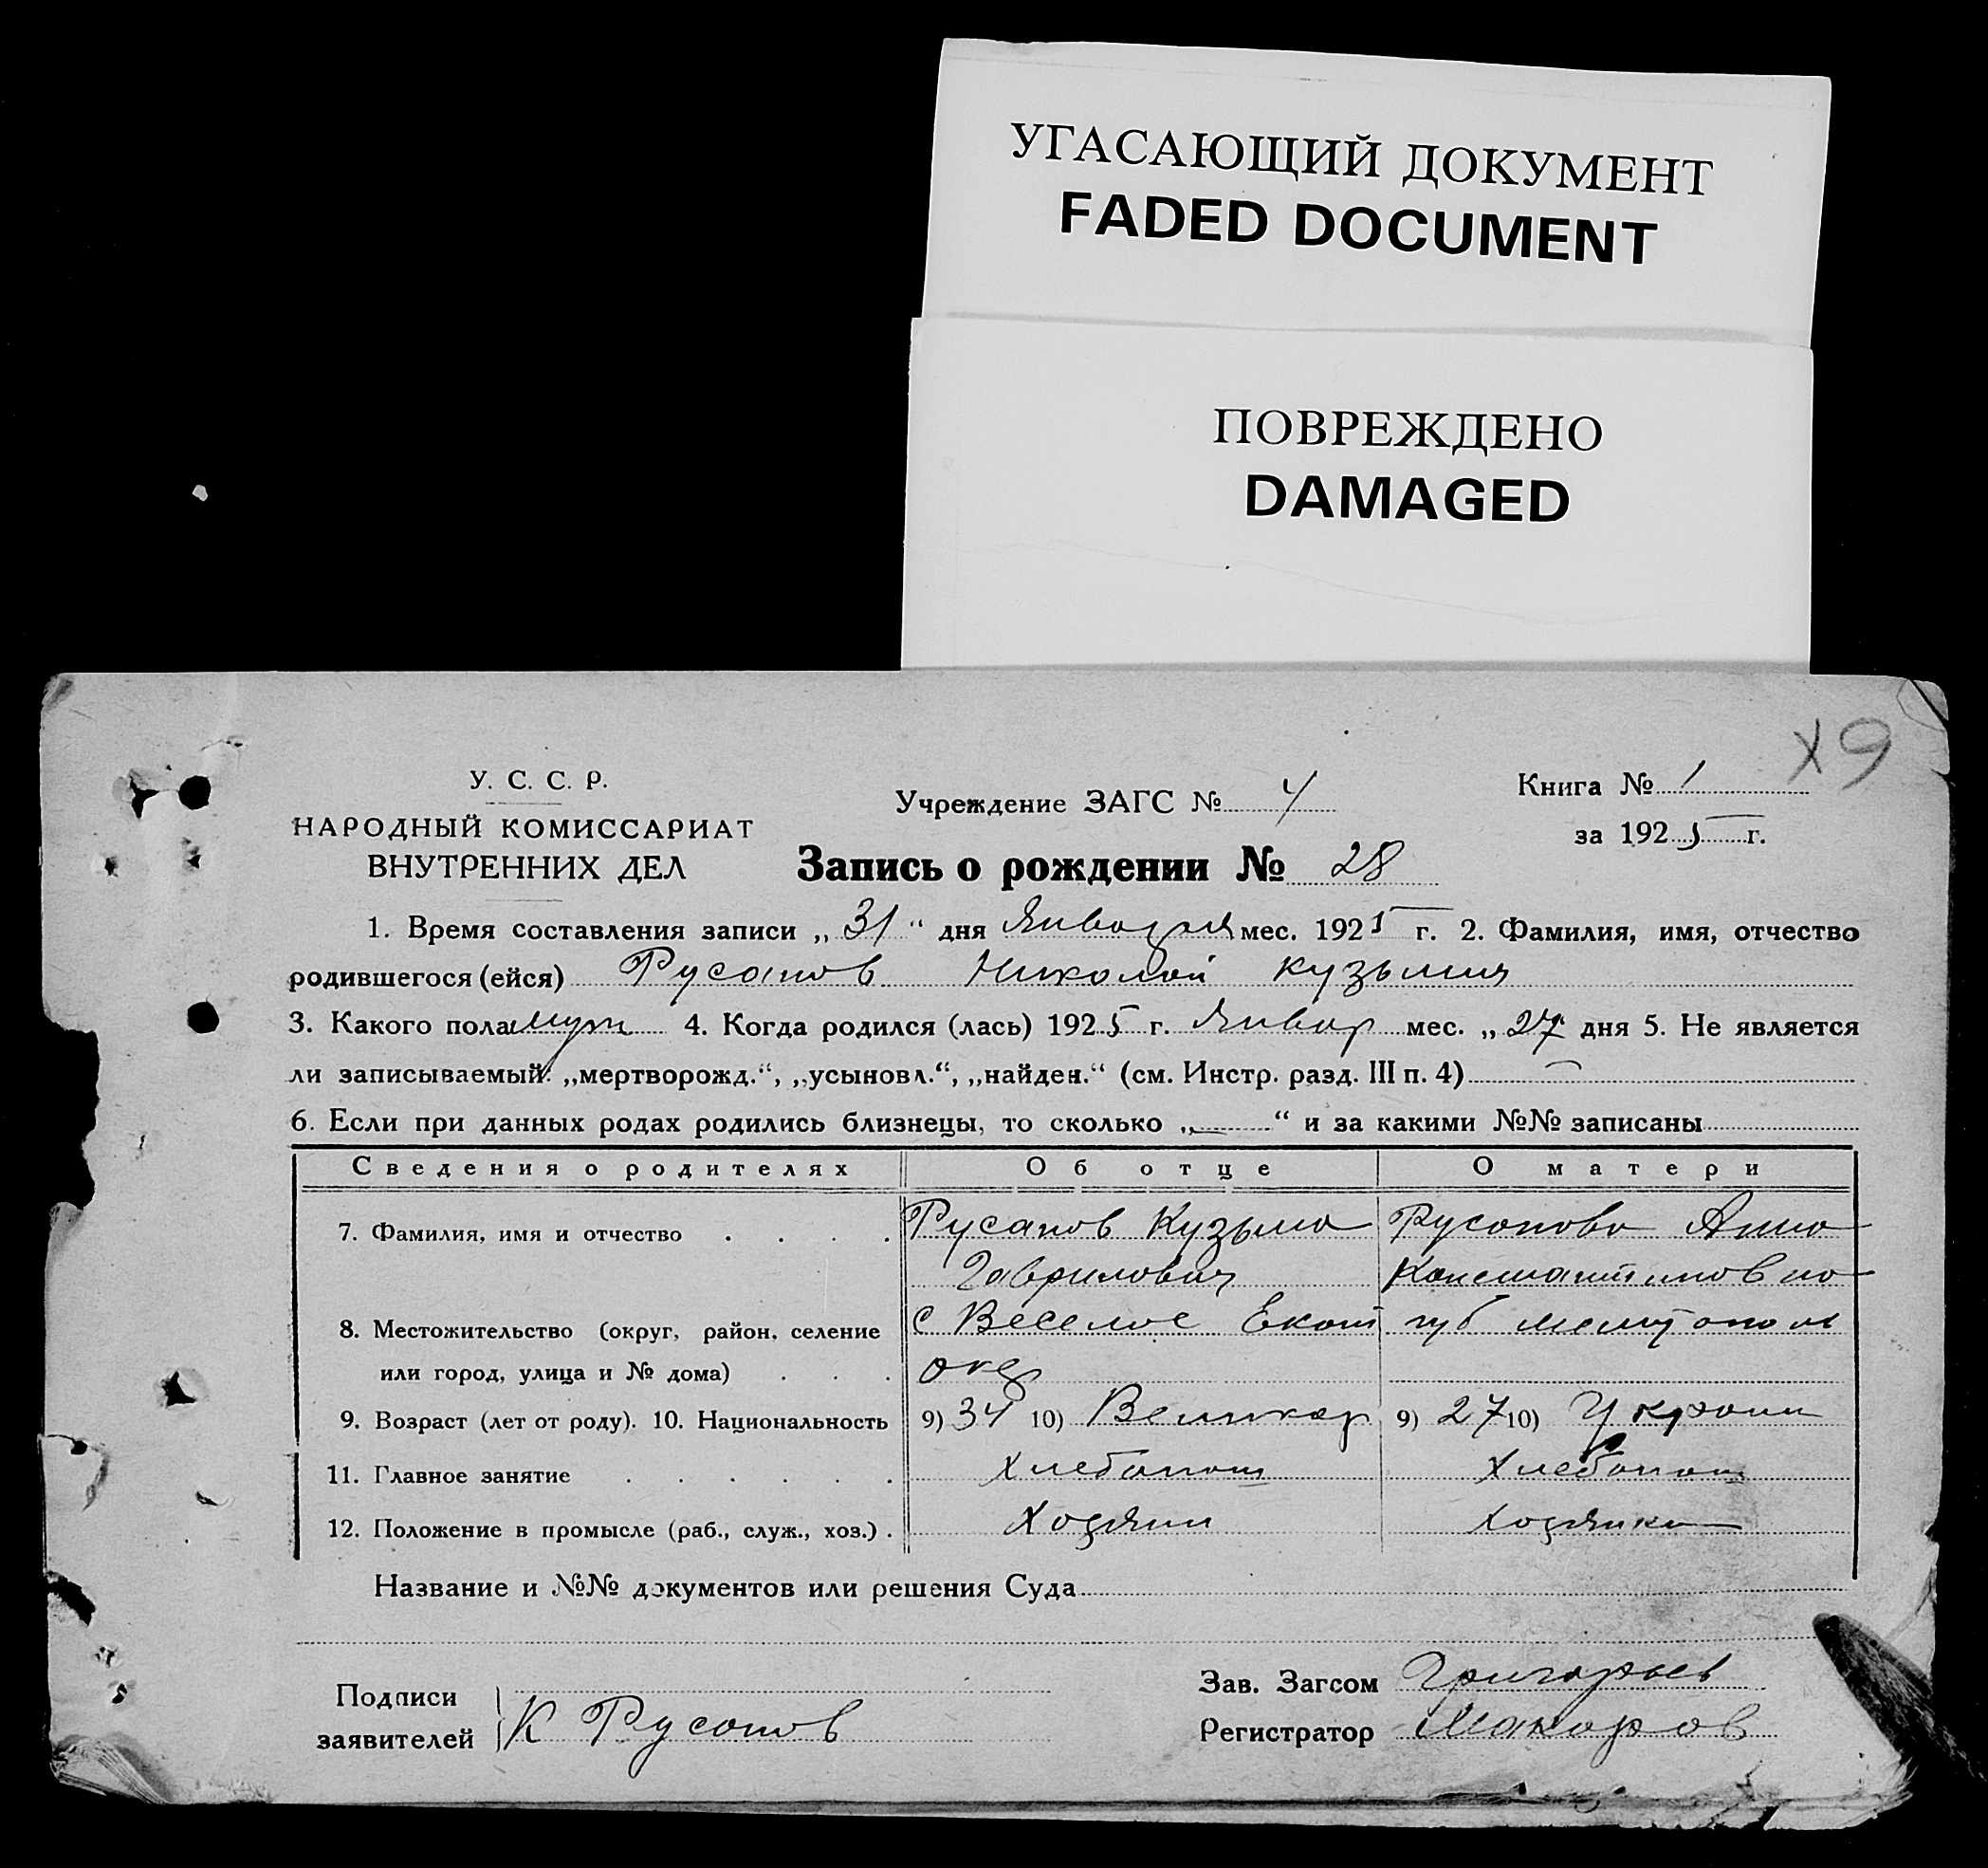 УГАСАЮЩИЙ ДОКУМЕНТ
FADED DOCUMENT
ПОВРЕЖДЕНО
DAMAGED
Х9
У. С. С. Р.
НАРОДНЫЙ КОМИССАРИАТ
ВНУТРЕННИХ ДЕЛ
Учреждение ЗАГС № 4
Книга № 1
за 1925 г.
Запись о рождении № 28
1. Время составления записи „31“ дня Января мес. 1925 г. 2. Фамилия, имя, отчество
родившегося (ейся) Русанов Николай Кузьмич
3. Какого пола муж 4. Когда родился (лась) 1925 г. Январ мес. „27 дня 5. Не является
ли записываемый „мертворожд.“, „усыновл.“, „найден.“ (см. Инстр. разд. III п. 4) —
6. Если при данных родах родились близнецы, то сколько „—“ и за какими №№ записаны
Сведения о родителях Об отце О матери
7. Фамилия, имя и отчество Русанов Кузьма Русанова Анна
Гаврилович Константиновна
8. Местожительство (округ, район, селение с Веселое Екат губ мелитополь
или город, улица и № дома) окр
9. Возраст (лет от роду). 10. Национальность 9) 34 10) Великор 9) 27 10) Украин
11. Главное занятие Хлебопаш Хлебопаш
12. Положение в промысле (раб., служ., хоз.) Хозяин хозяйка
Название и №№ документов или решения Суда
Подписи
заявителей К Русанов
Зав. Загсом Григорьев
Регистратор Макаров